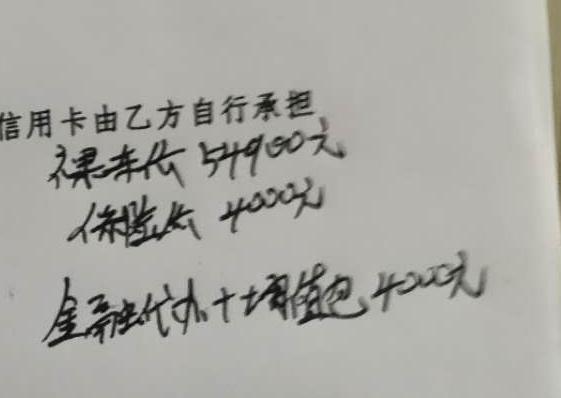 信用卡由乙方自行承担
裸车价 54900元
保险公 4000元
金融代办+增值包 4000元